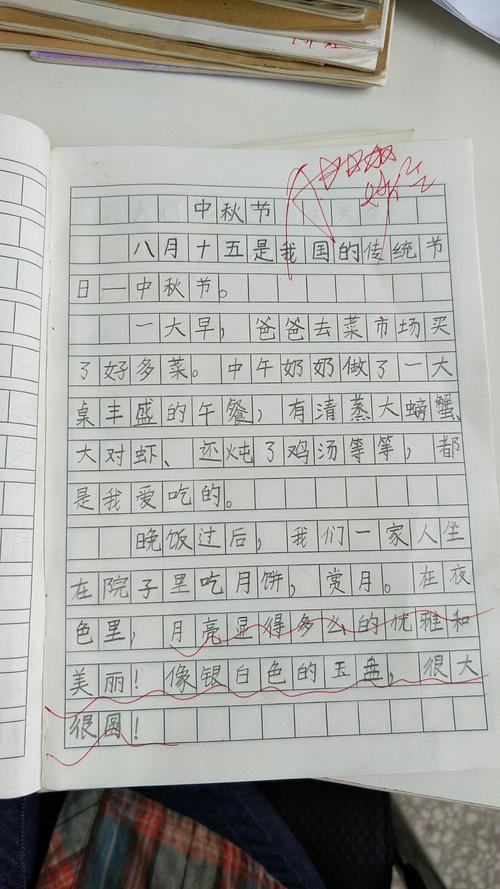 中秋节
八月十五是我国的传统节
日—中秋节。
一大早，爸爸去菜市场买
了好多菜。中午奶奶做了一大
桌丰盛的午餐，有清蒸大螃蟹、
大对虾、还炖了鸡汤等等，都
是我爱吃的。
晚饭过后，我们一家人坐
在院子里吃月饼，赏月。在夜
色里，月亮显得多么的优雅和
美丽！像银白色的玉盘，很大
很圆！